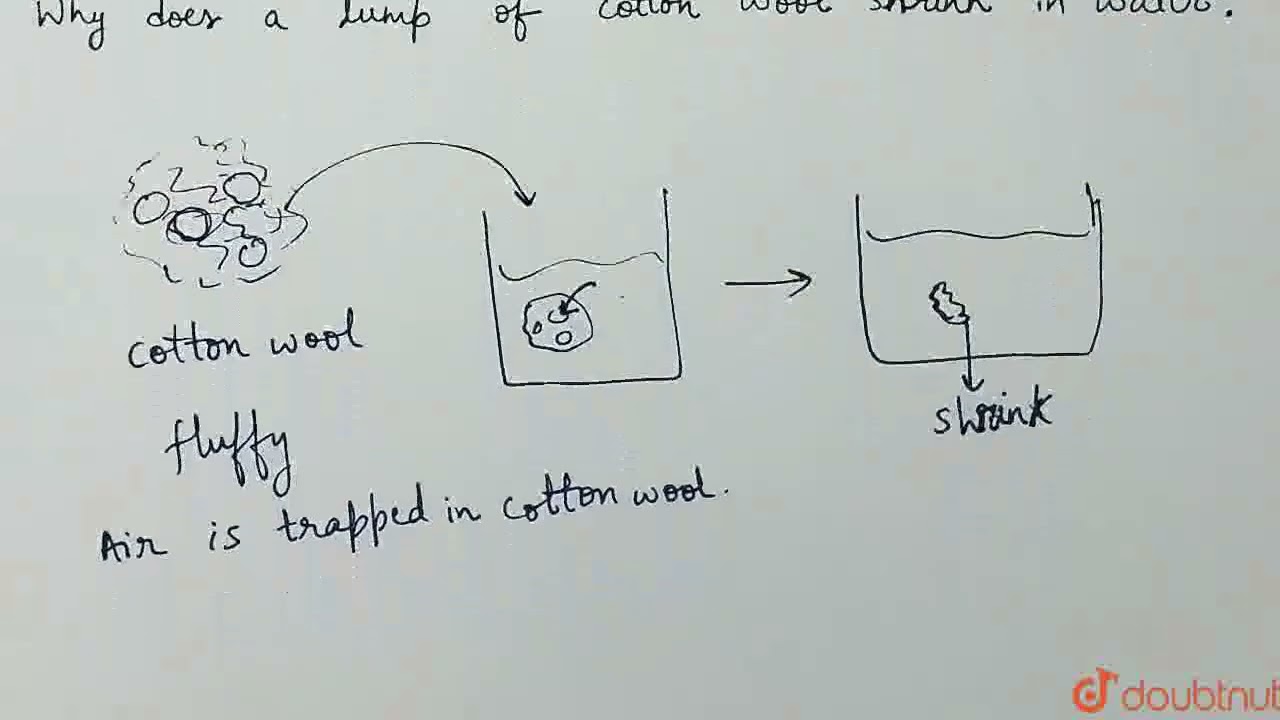 Why does a lump of cotton wool shrink in water.
cotton wool
fluffy
shrink
Air is trapped in cotton wool.
doubtnut